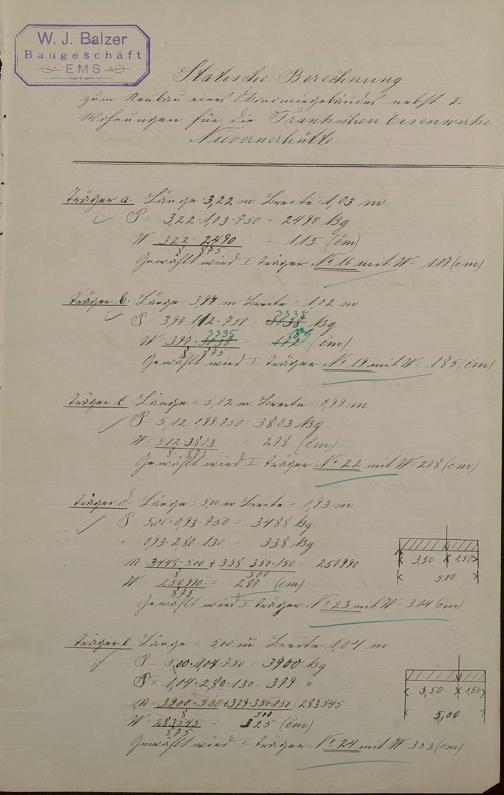 W. J. Balzer
Baugeschäft
EMS
Statische Berechnung
zum Neubau eines Ökonomiegebäudes nebst 2
Wohnungen für die Frankschen Eisenwerke
Nievernerhütte
Träger a. Länge 3,22 m Breite 1,03 m
P = 3,22·1,03·750 = 2490 Kg
W 322·2490 = 115 (cm)
8 875
Gewählt wird I Träger No 16 mit W = 117 (cm)
Träger b. Länge 3,97 m Breite 1,12 m
3335
P = 3,97·1,12·750 Kg
3335
W = 397· (cm)
8 875
Gewählt wird I Träger No 19 mit W 185 (cm)
Träger c Länge = 5,12 m Breite = 0,99 m
P = 5,12·0,99·750 3803 Kg
W = 512·3803 = 278 (cm)
8 875
Gewählt wird I Träger No 22 mit W 278 (cm)
Träger d Länge = 5,00 m Breite = 0,93 m
P = 5,00·0,93·750 = 3488 Kg
0,93·2,80·130 = 338 Kg
M 3448·500 + 338·350·150 = 250990
8 500
W = 250990 = 287 (cm)
875
Gewählt wird I Träger No 23 mit W 314 (cm)
3,50 1,50
5,00
Träger e Länge = 5,00 m Breite 1,04 m
P = 5,00·1,04·750 = 3900 Kg
P = 1,04·2,80·130 = 379 "
M = 3900·500 + 379·350·150 = 283545
8 500
W 283545 = 325 (cm)
875
Gewählt wird I Träger No 24 mit W 353 (cm)
3,50 1,50
5,00